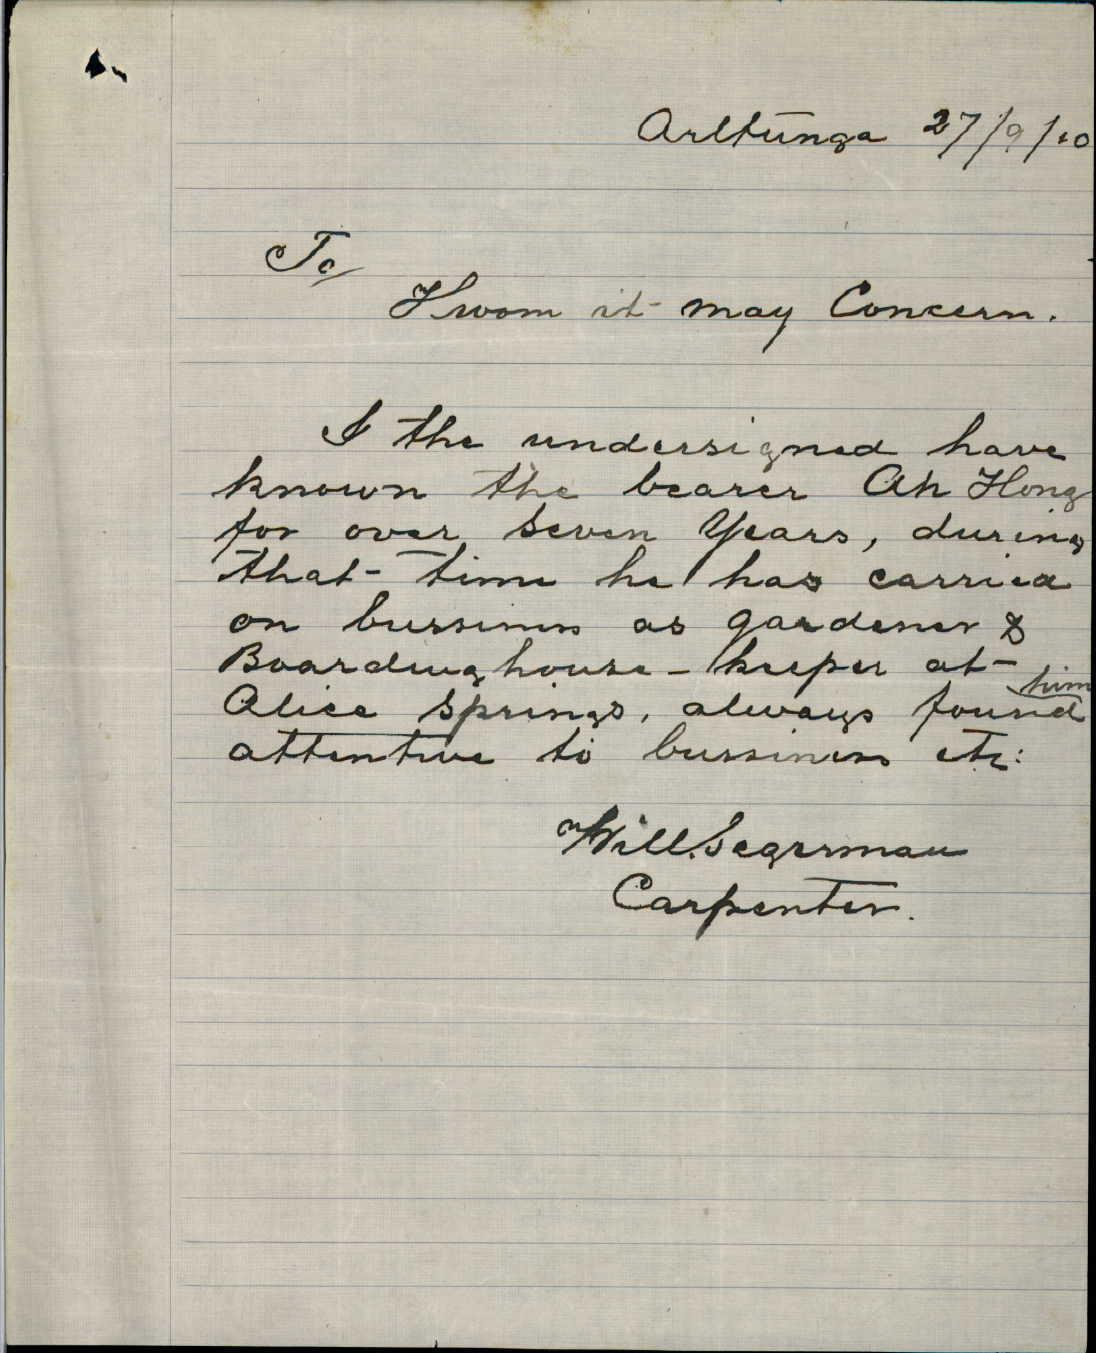 Arltunga 27/9/10
To
Hwom it may Concern.
I the undersigned have
known the bearer Ah Hong
for over seven Years, during
that time he has carried
on bussiness as gardener &
Boardinghouse-keeper at
Alice springs, always found him
attentive to bussiness etc:
Will. Segerman
Carpenter.